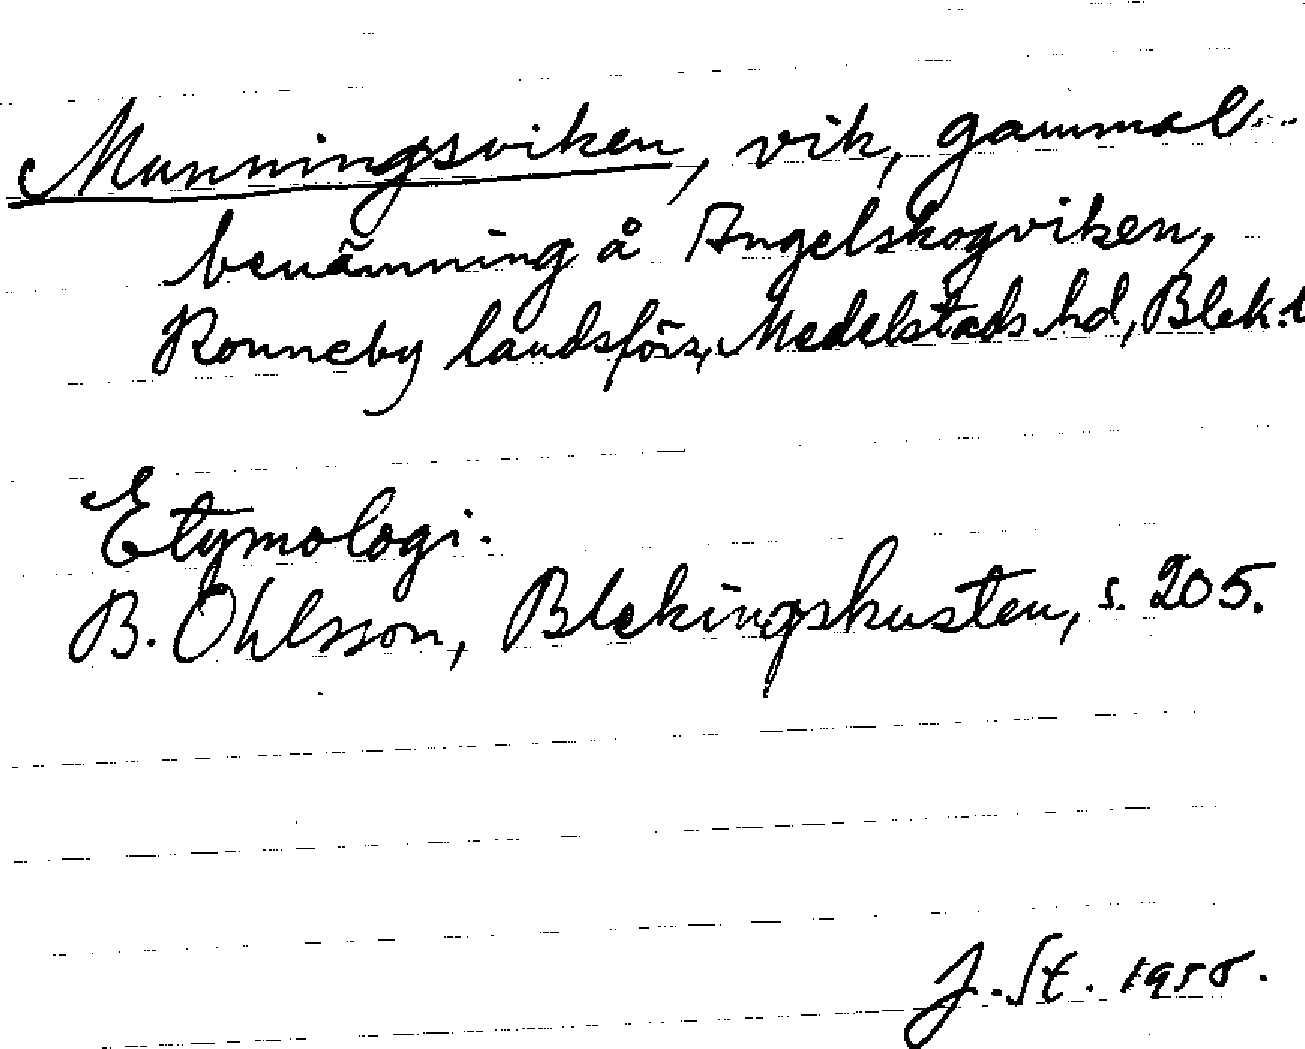 Munningsviken, vik, gammal
benämning å Angelskogviken,
Ronneby landsförs, Medelstads hd, Blek. l
Etymologi.
B. Ohlsson, Blekingskusten, s. 205.
J. St. 1950.